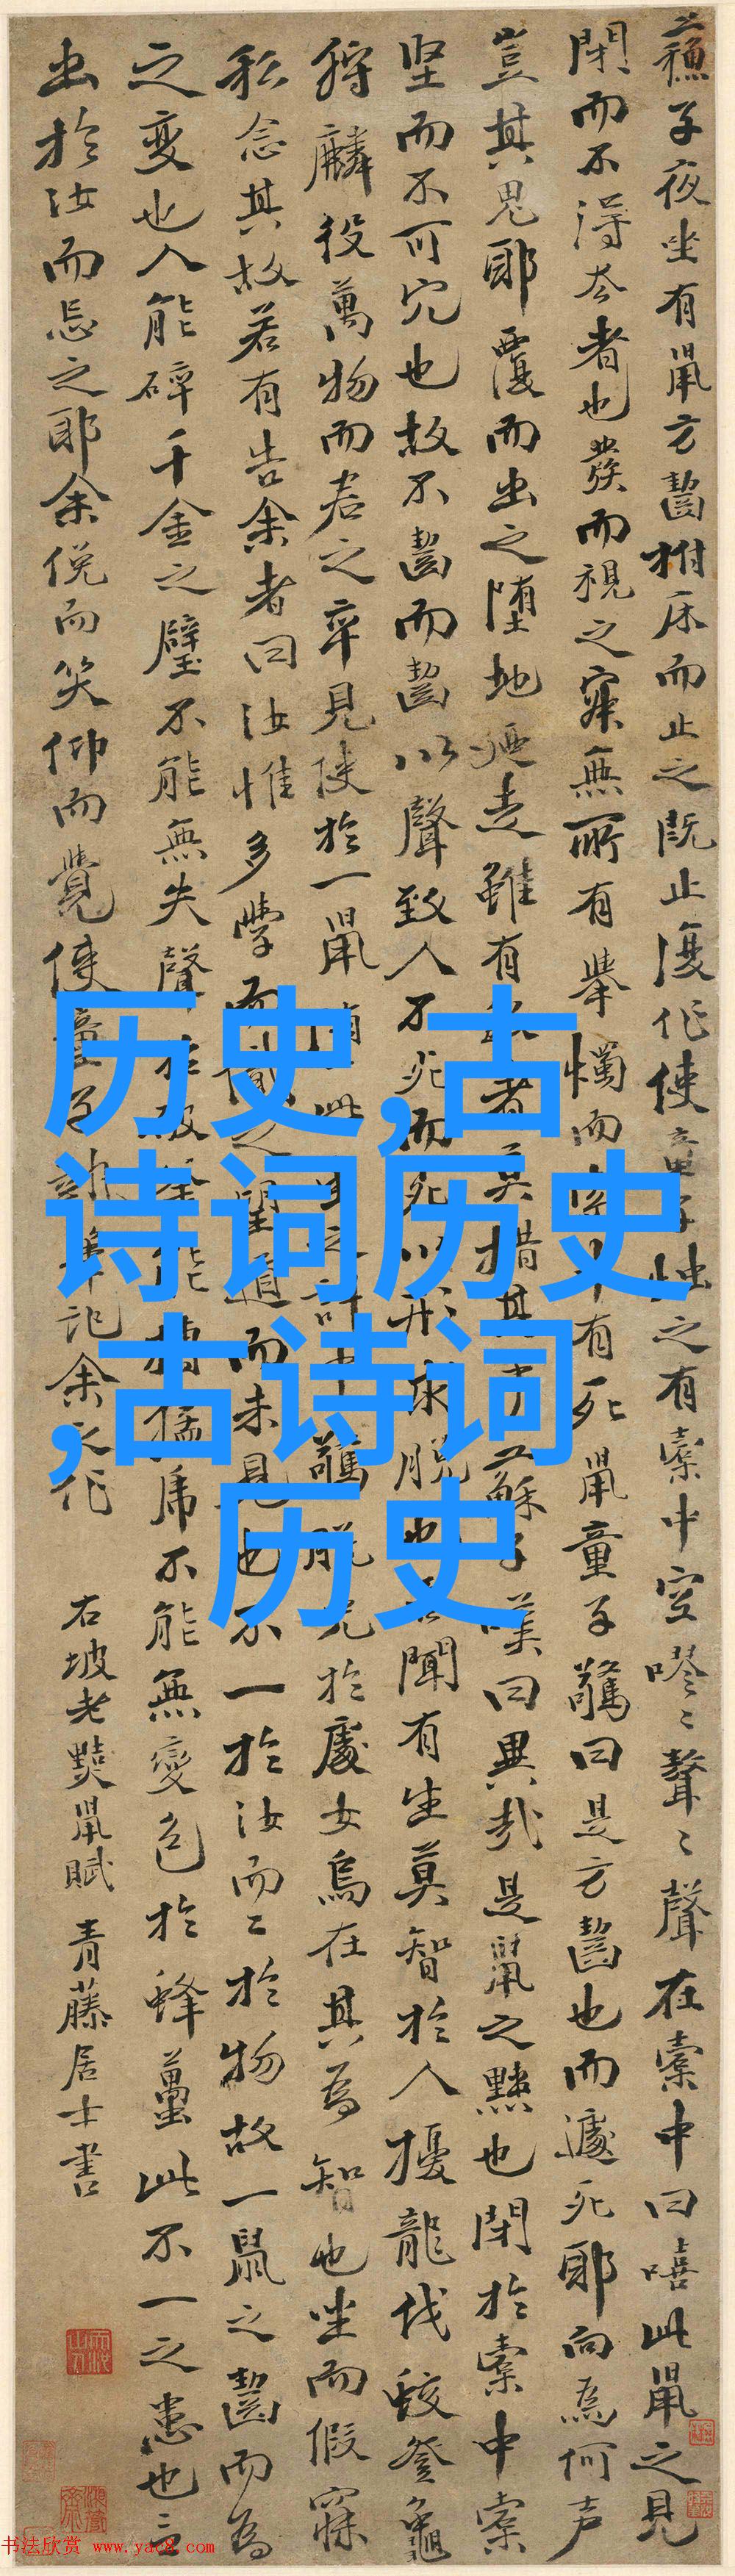 蘓子夜坐有鼠方齧拊床而止之既止復作使童子燭之有橐中空嘐〻聱〻聲在橐中曰嘻此鼠之見
閉而不得去者也發而視之寂無所有舉燭而有死鼠童子驚曰是方齧也而遽死耶向為何声
豈其鬼耶覆而出之堕地迺走雖有者莫措其手蘇子嘆曰異哉是鼠之黠也閉於橐中橐
坚而不可穴也故不齧而齧以聲致人不死而死以形求脱也吾聞有生莫智於人擾龍伐蛟登龜
狩麟役萬物而君之卒見使於一鼠此之計中驚脱兔於處女烏在其為智也坐而假寐
私念其故若有告余者曰汝惟多學而識之望道而未見也不一於汝而二於物故一鼠之齧而為
之變也人能碎千金之璧不能無失聲於破釜能搏猛虎不能無變色於蜂蠆此不一之患也言
出於汝而忘之耶余俛而笑仰而覺使童子執筆記余之作
右坡老黠鼠賦 青藤居士書
历史,古
诗词历史
,古诗词
历史
书法欣赏 www.yac8.com